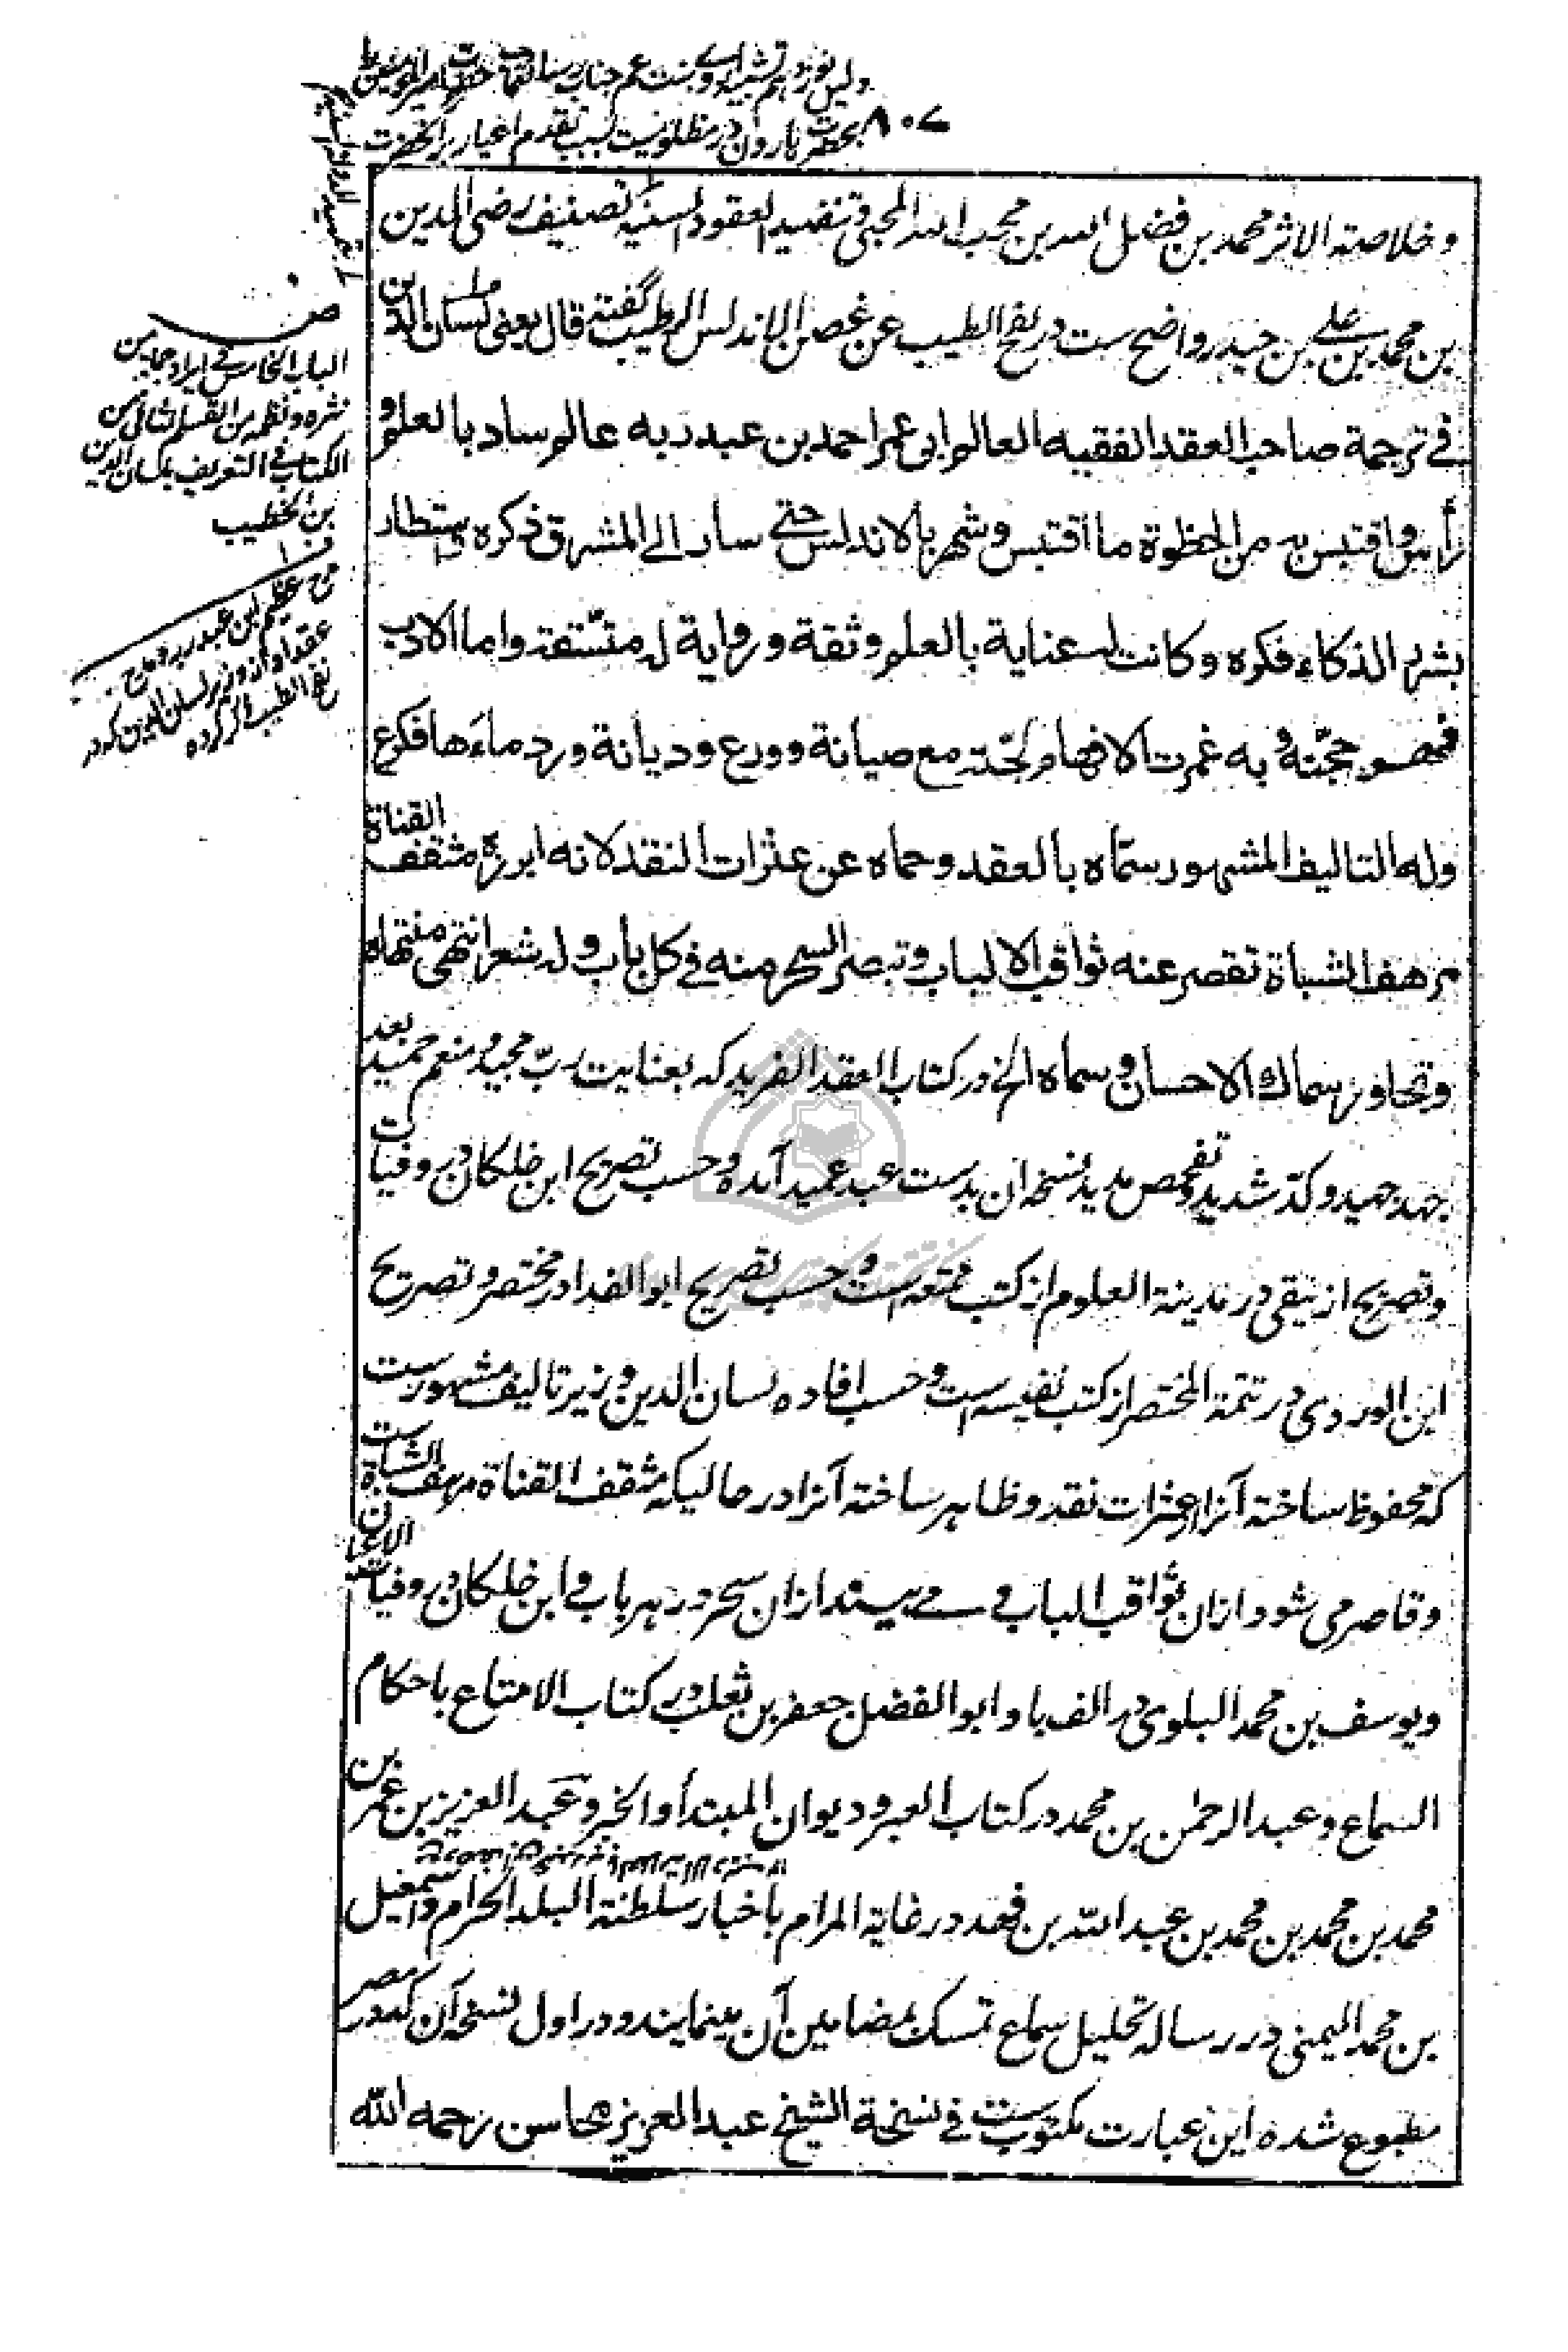 دلیل نوزدهم تشبیه اوبنت عم جناب رسالتمآب حضرت امیرالمؤمنین را
۸۰۷ بحضرت هارون در مظلومیت بسبب تقدم اغیار بر آنحضرت
و خلاصة الاثر محمد بن فضل الله بن محب الله المحبی و تنضید العقود السنیة تصنیف رضی الدین
بن محمد بن علی بن حیدر واضح ست در نفح الطیب عن غصن الاندلس الرطیب گفته قال یعنی لسان الدین
فی ترجمة صاحب العقد الفقیه العالم ابی عمر احمد بن عبد ربه عالم ساد بالعلم و
رأس و اقتبس به من الحظوة ما اقتبس و شهر بالاندلس حتی سار الی المشرق ذکره و استطار
بشرر الذکاء فکره و کانت له عنایة بالعلم و ثقة و روایة له متسقة و اما الادب
فهو حجته و به غمرت الافهام لجته مع صیانة و ورع و دیانة ورد ماءها فکرع
وله التالیف المشهور سماه بالعقد و حماه عن عثرات النقد لانه ابرزه مثقف القناة
مرهف الشباة تقصر عنه ثواقب الالباب و تبصر السحر منه فی کل باب و له شعر انتهی منتهاه
و تجاوز سماك الاحسان و سماه الخ در کتاب العقد الفرید که بعنایت رب مجید و منعم حمید بعد
جهد جهید و کد شدید و تفحص مدید نسخه ان بدست عبد عمید آمده و حسب تصریح ابن خلکان در وفیات
و تصریح ازنیقی در مدینة العلوم از کتب ممتعه است و حسب تصریح ابو الفدا در مختصر و تصریح
ابن الوردی در تتمة المختصر از کتب نفیسه است و حسب افاده لسان الدین وزیر تالیف مشهورست
که محفوظ ساخته آنرا از عثرات نقد و ظاهر ساخته آنرا در حالیکه مثقف القناة مرهف الشباة ست
و قاصر می شود ازان ثواقب الباب و می بینند ازان سحر در هر باب و ابن خلکان در وفیات الاعیان
و یوسف بن محمد البلوی در الف با و ابو الفضل جعفر بن ثعلب در کتاب الامتاع باحکام
السماع و عبد الرحمن بن محمد در کتاب العبر و دیوان المبتدأ و الخبر و عبد العزیز بن عمر بن
محمد بن محمد بن محمد بن عبد الله بن فهد در غایة المرام باخبار سلطنة البلد الحرام و اسمعیل
بن محمد الیمنی در رساله تحلیل سماع تمسک بمضامین آن مینمایند و در اول نسخه آن که در مصر
مطبوع شده این عبارت مکتوب ست فی نسخة الشیخ عبد العزیز محاسن رحمه الله
الباب الخامس فی ایراد جمل من
نثره و نظمه من القسم الثانی من
الکتاب فی التعریف بلسان الدین
بن الخطیب
مدح عظیم ابن عبد ربه و مدح
عقد او از وزیر لسان الدین که در
نفح الطیب ذکر کرده